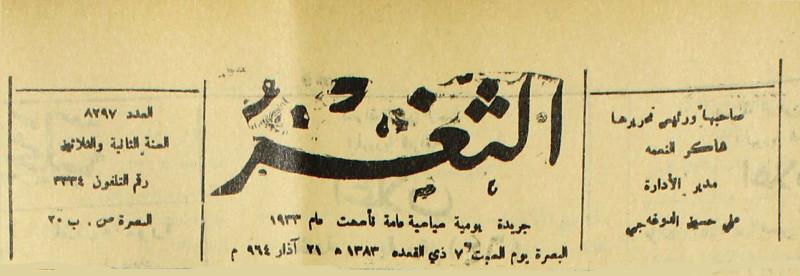 صاحبها ورئيس تحريرها
شاكر النعمه
مدير الأدارة
علي حسين
الثغر
جريدة يومية سياسية عامة تأسست عام ١٩٣٣
البصرة يوم السبت ٧ ذي القعده ١٣٨٣ ه ٢١ آذار ٩٦٤ م
العدد ٨٢٩٧
السنة الثانية والثلاثون
رقم التلفون ٣٣٣٤
البصرة ص . ب ٢٠